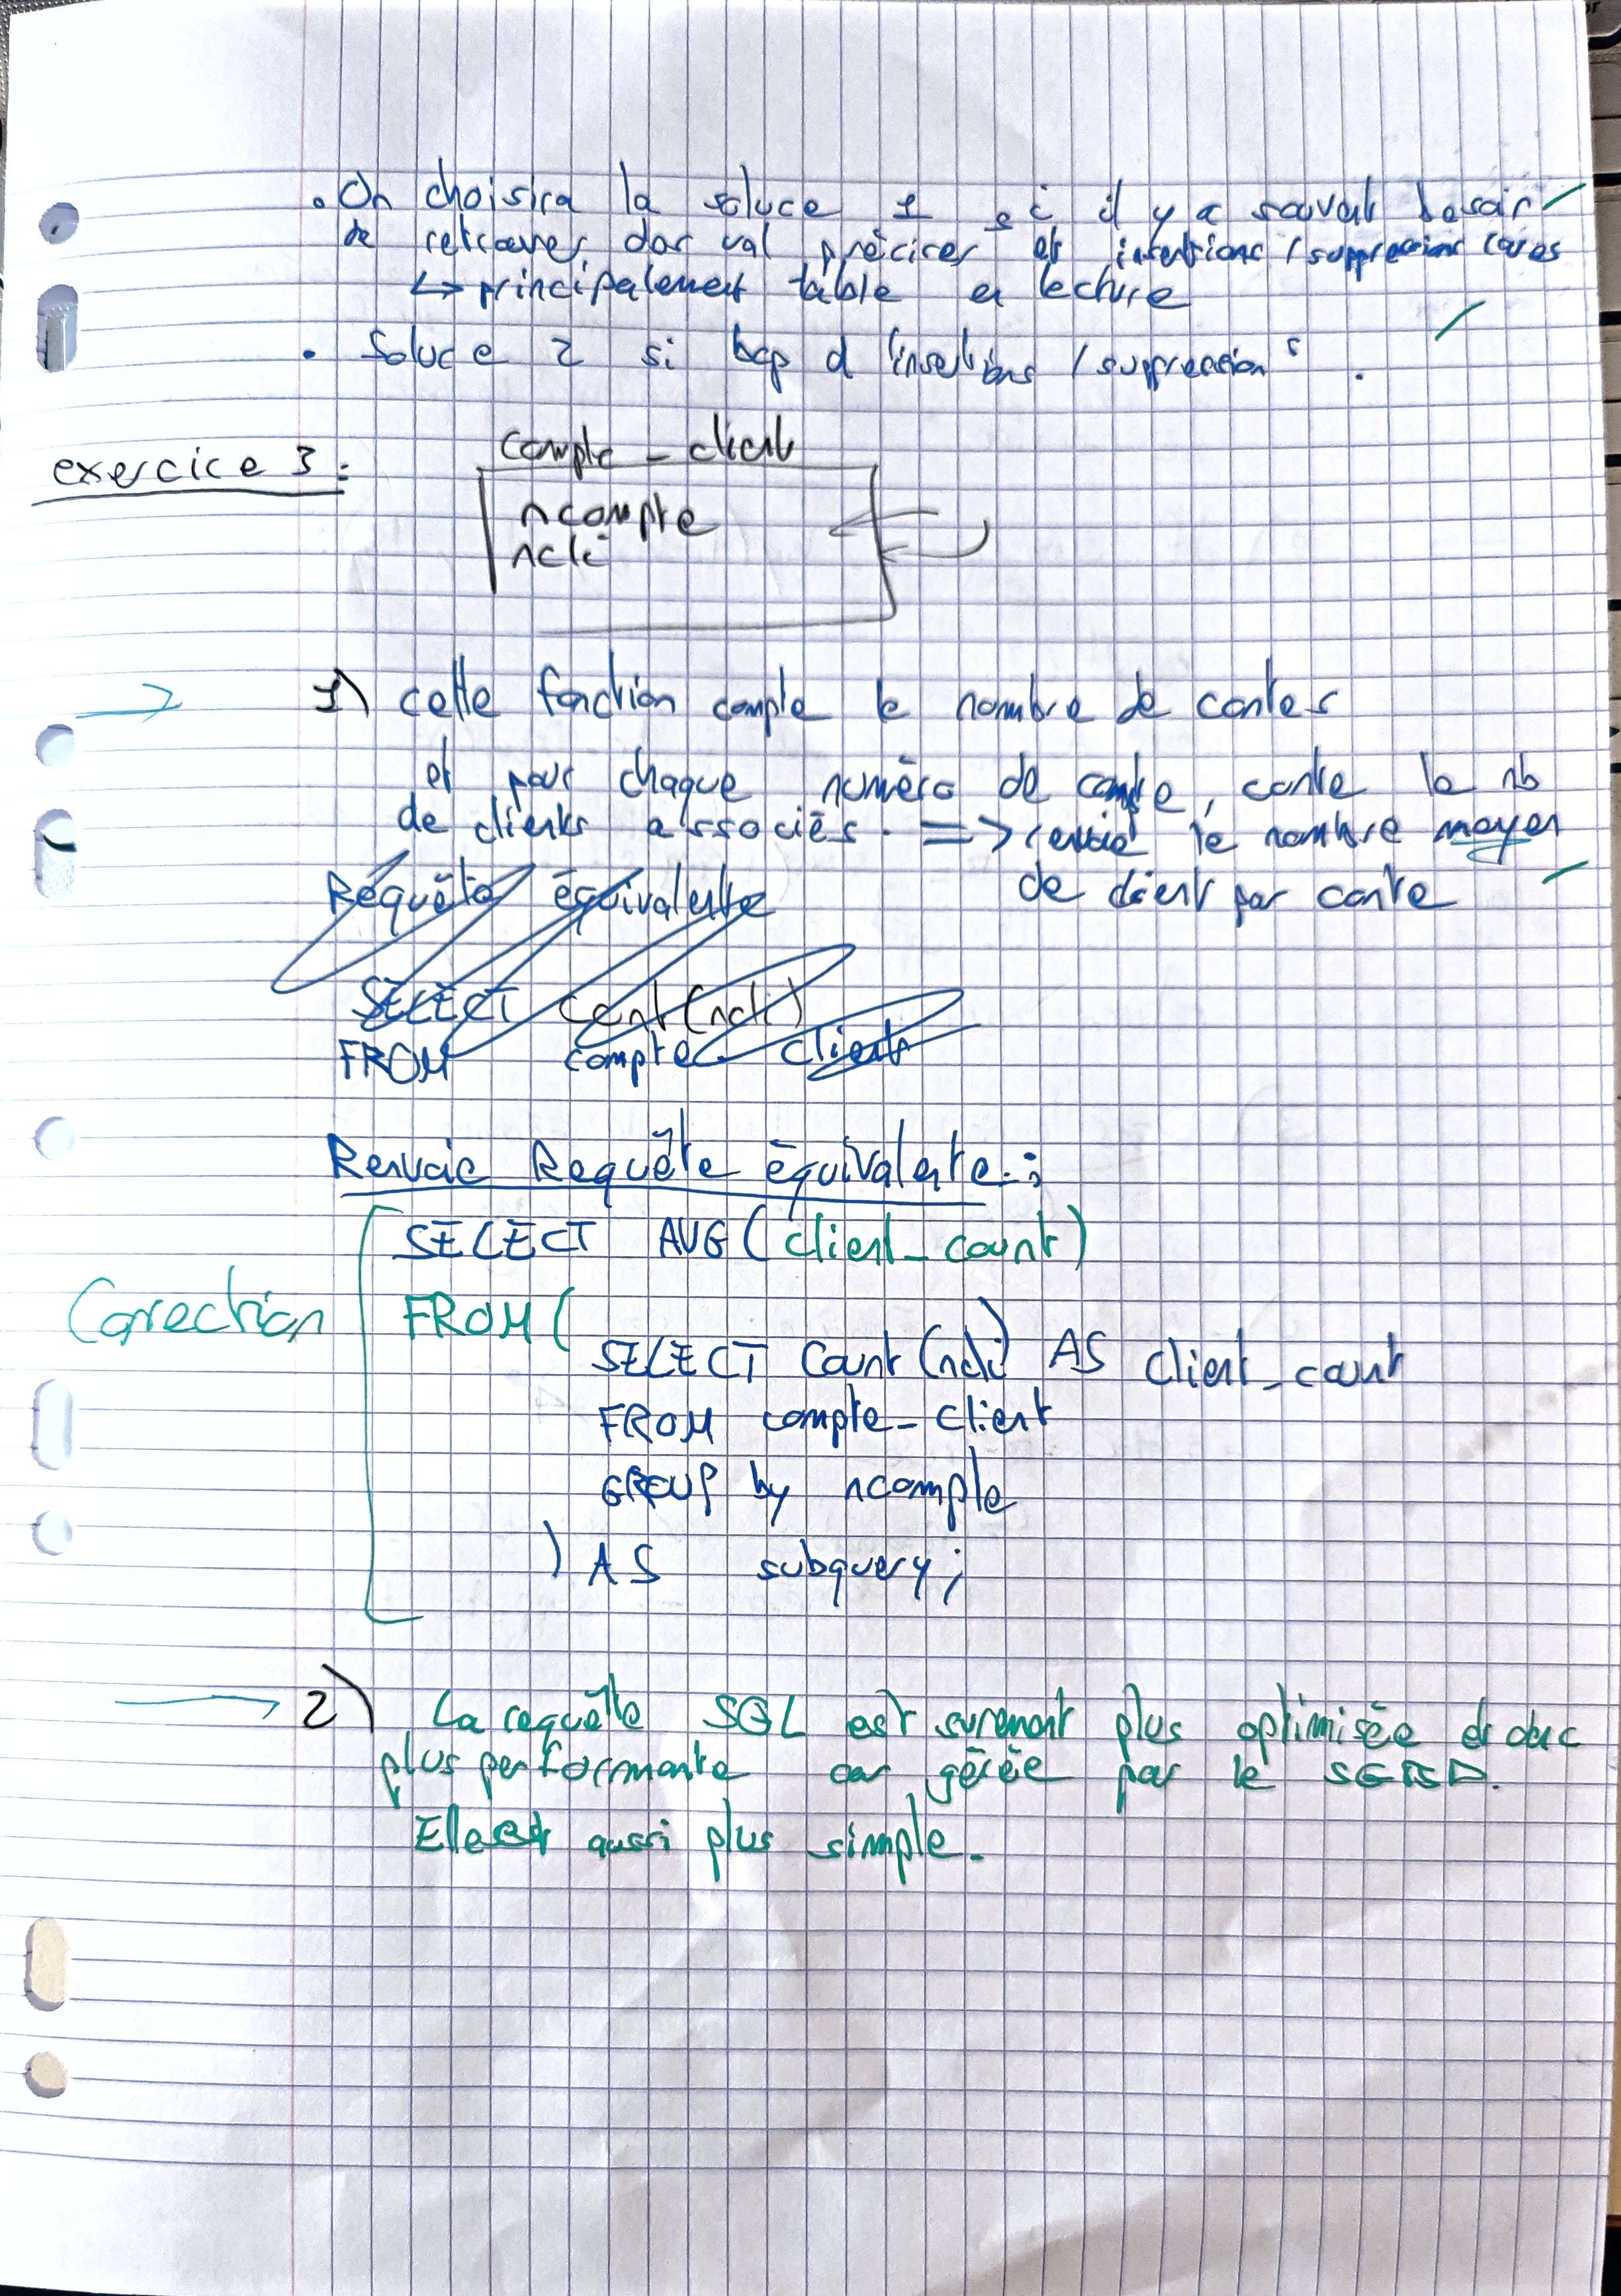 . On choisira la soluce 1 si il y a souvent besoin
de retrouver des val précises et insertions / suppressions rares
↳ principalement table en lecture
. Soluce 2 si bcp d'insertions / suppressions .
exercice 3 :
compte _ client
ncompte
ncli
→ 1) cette fonction compte le nombre de contes
et pour chaque numéro de compte, conte le nb
de clients associés. => renvoie le nombre moyen
de client par conte
Requête équivalente
SELECT cont(ncli)
FROM compte client
Renvoie Requête équivalente :
SELECT AVG ( client_count )
Correction
FROM (
SELECT Count (ncli) AS client_count
FROM compte_client
GROUP by ncompte
) AS subquery ;
→ 2) La requête SQL est surement plus optimisée et donc
plus performante car gérée par le SGBD.
Elle est aussi plus simple.